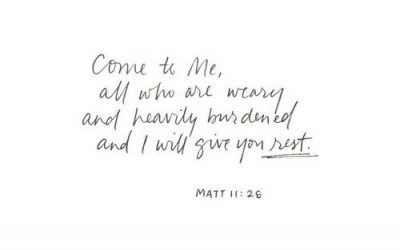 Come to Me,
all who are weary
and heavily burdened
and I will give you rest.
MATT 11:28